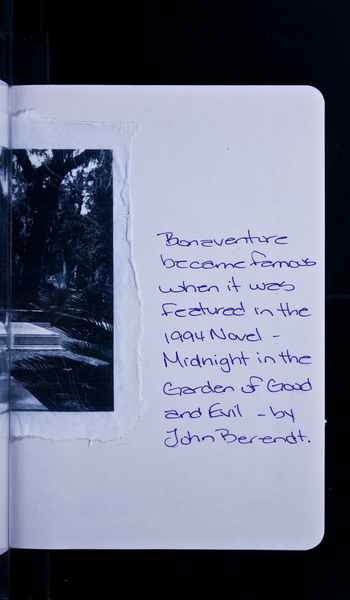 Bonaventure
became famous
when it was
featured in the
1994 Novel -
Midnight in the
Garden of Good
and Evil - by
John Berendt.